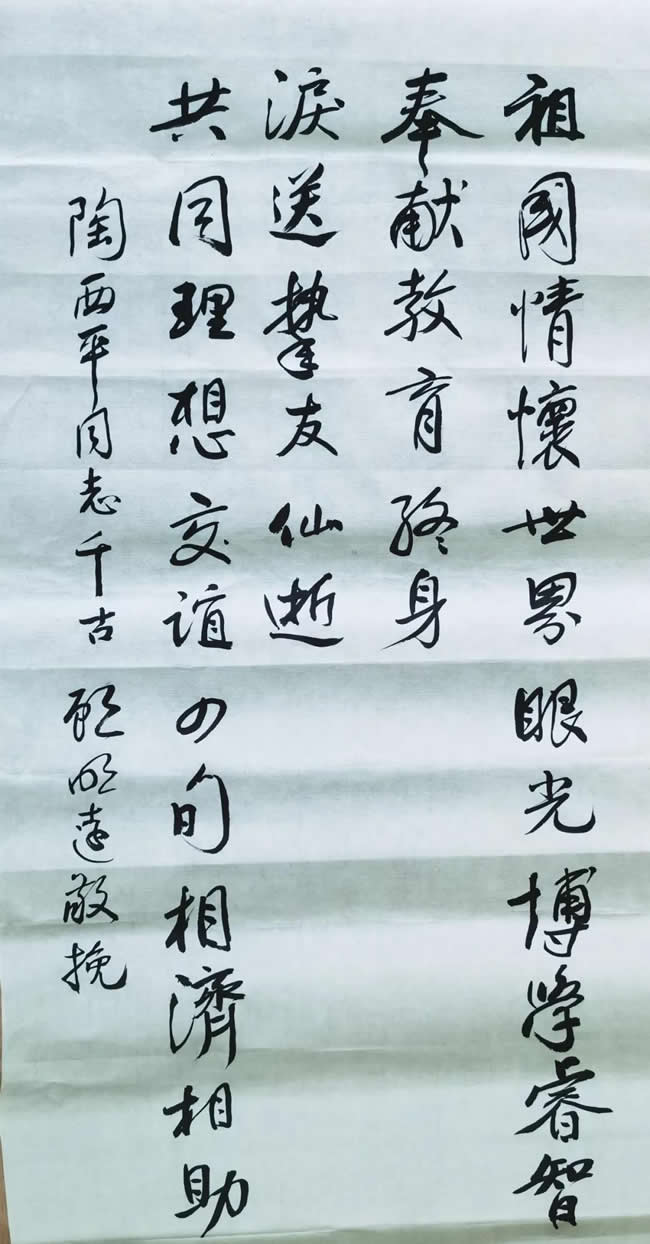 祖國情懷世界眼光博学睿智
奉献教育终身
淚送摯友仙逝
共同理想交谊四旬相濟相助
陶西平同志千古 顾明远敬挽